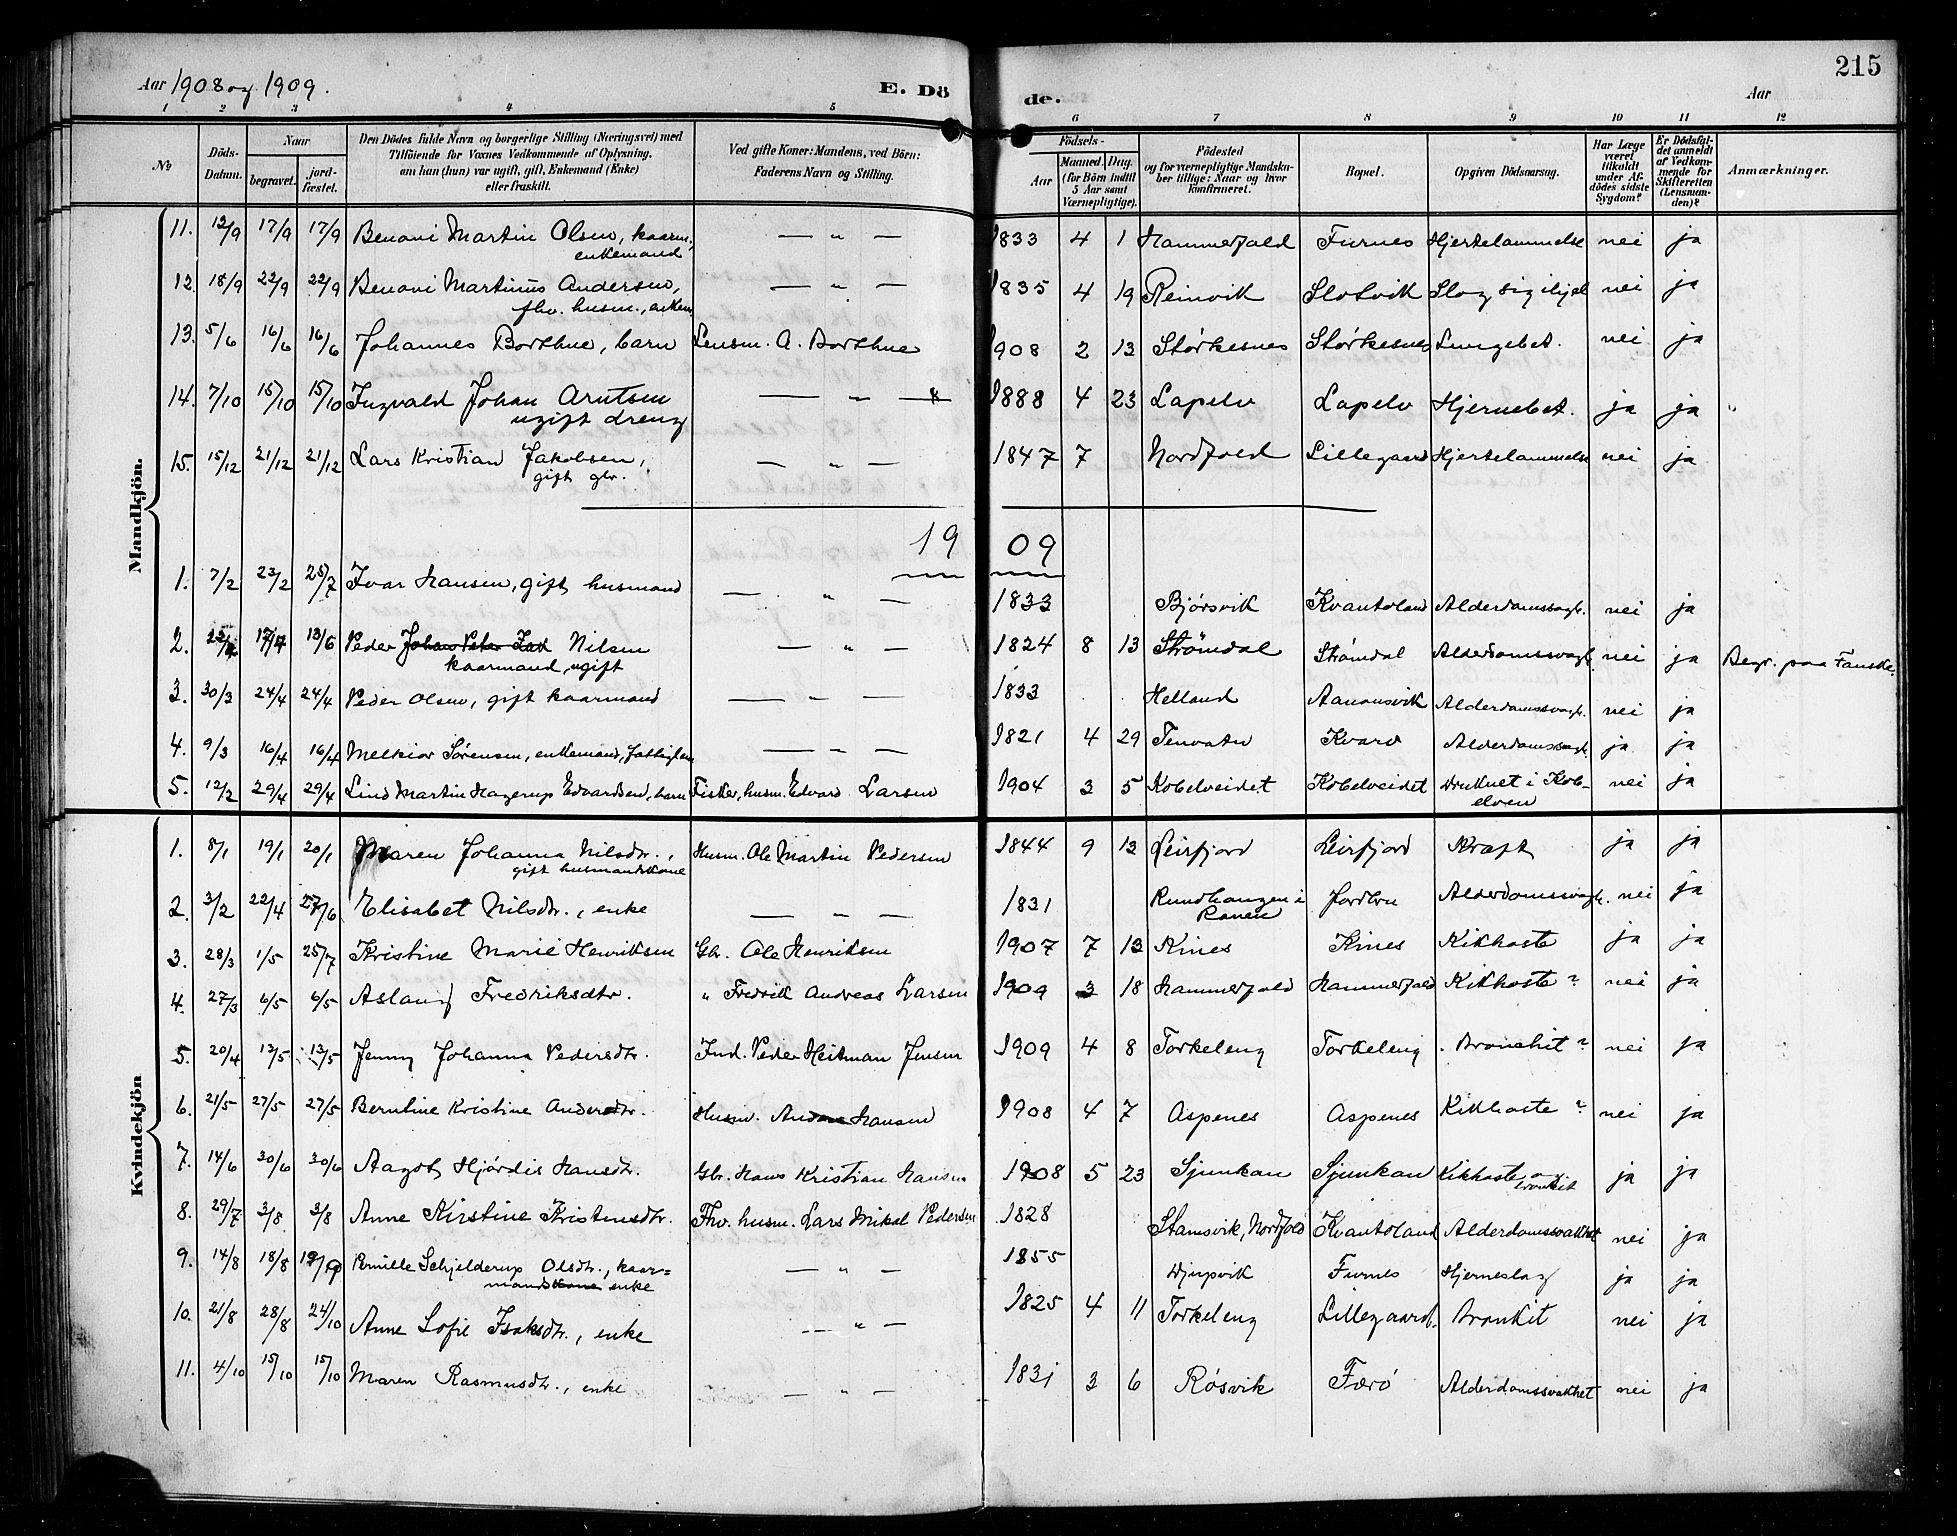 Aar 1908 og 1909.
E. Dö de.
Aar
215
1 2 3 4 5 6 7 8 9 10 11 12
No
Döds-Datum.
Naar
begravet.
jord-fæstet.
Den Dödes fulde Navn og borgerlige Stilling (Næringsvei) med
Tilföiende for Voxnes Vedkommende af Oplysning,
om han (hun) var ugift, gift, Enkemand (Enke)
eller fraskilt.
Ved gifte Koner: Mandens, ved Börn:
Faderens Navn og Stilling.
Födsels-
Aar
Maaned. Dag.
(for Börn indtil
5 Aar samt
Værnepligtige).
Födested
og for værnepligtige Mandska-
ber tillige: Naar og hvor
konfirmeret.
Bopæl.
Opgiven Dödsaarsag.
Har Læge
været
tilkaldt
under Af-
dödes sidste
Sygdom?
Er Dödsfal-
det anmeldt
af Vedkom-
mende for
Skifteretten
(Lensman-
den)?
Anmærkninger.
Mandkjön.
11. 12/9 17/9 17/9 Benoni Martin Olsen, kaarm., enkemand — " — 1833 4 1 Hammerfald Furnes Hjertelammelse nei ja
12. 18/9 22/9 22/9 Benoni Martinus Andersen, fhv. husm., enkem. — " — 1835 4 19 Reinvik Slotvik Slog sig ihjel nei ja
13. 5/6 16/6 16/6 Johannes Borthne, barn Lensm. A. Borthne 1908 2 13 Størkesnes Størkesnes Lungebet. nei ja
14. 7/10 15/10 15/10 Ingvald Johan Arntsen ugift dreng — " — 1888 4 23 Lapelv Lapelv Hjernebet. ja ja
15. 15/12 21/12 21/12 Lars Kristian Jakobsen, gift gbr. — " — 1847 7 Nordfold Lillegaard Hjertelammelse nei ja
1909
1. 7/2 23/2 25/7 Ivar Hansen, gift husmand — " — 1833 Bjørsvik Kvantoland Alderdomssvagh. nei ja
2. 13/6 Peder Nilsen kaarmand, ugift — " — 1824 8 13 Strømdal Strømdal Alderdomssvagh. nei ja Begr. paa Fauske.
3. 30/3 24/4 24/4 Peder Olsen, gift kaarmand — " — 1833 Helland Aanonsvik Alderdomssvagh. nei ja
4. 9/3 16/4 16/4 Melkior Sørensen, enkemand, — " — 1821 4 29 Tenvatn Kvarv Alderdomssvagh. ja ja
5. 12/2 29/4 29/4 Lind Martin Hagerup Edvardsen, barn Fisker, husm. Edvard Larsen 1904 3 5 Kobelveidet Kobelveidet Druknet i Kob-elven nei ja
Kvindekjön
1. 8/1 19/1 20/1 Maren Johanna Nilsdtr., gift husmandskone Husm. Ole Martin Pedersen 1844 9 13 Leirfjord Leirfjord Kræft ja ja
2. 3/2 22/4 27/6 Elisabet Nilsdtr., enke — " — 1831 Rundhaugen i Ranen Jordbru Alderdomssvagh. nei ja
3. 28/3 1/5 25/7 Kristine Marie Henriksen Gbr. Ole Henriksen 1907 7 13 Kines Kines Kikhoste ja ja
4. 27/3 6/5 6/5 Aslaug Fredriksdtr. " Fredrik Andreas Larsen 1909 3 18 Hammerfald Hammerfald Kikhoste? nei ja
5. 20/4 13/5 13/5 Jenny Johanna Pedersdtr. Ind. Peder Heitman Jensen 1909 4 8 Torkeleng Torkeleng Bronchit? nei ja
6. 21/5 27/5 27/5 Berntine Kristine Andersdtr. Husm. Anders Hansen 1908 4 7 Aspenes Aspenes Kikhoste? nei ja
7. 14/6 30/6 30/6 Aagot Hjørdis Hansdtr. Gbr. Hans Kristian Hansen 1908 5 23 Sjunkan Sjunkan Kikhoste og bronkit ja ja
8. 29/7 3/8 3/8 Anne Kirstine Kristensdtr. Fhv. husm. Lars Mikal Pedersen 1828 Stamsvik, Nordfold Kvantoland Alderdomssvakhet nei ja
9. 14/8 18/8 Pernille Schjelderup Olsdtr., kaar=mandskone enke — " — 1855 Djupvik Furnes Hjerneslag ja ja
10. 21/8 28/8 24/10 Anne Sofie Isaksdtr., enke — " — 1825 4 11 Torkeleng Lillegaard. Bronkit nei ja
11. 4/10 15/10 15/10 Maren Rasmusdtr., enke — " — 1831 3 6 Røsvik Færø Alderdomssvakhet nei ja